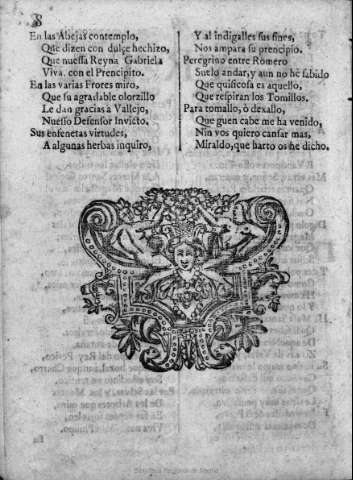 8
En las Abejas contemplo,
Que dizen con dulçe hechizo,
Que nuessa Reyna Gabriela
Viva con el Prencipito.
En las varias Frores miro,
Que su agradable olorzillo
Le dan gracias à Vallejo,
Nuesso Defensor Invicto,
Sus ensenetas virtudes,
A algunas herbas inquiro,
Y al indigalles sus fines,
Nos ampara su prencipio.
Peregrino entre Romero
Suelo andar, y aun no hè sabido
Què quisicosa es aquello,
Que respiran los Tomillos.
Para tomallo, ò dexallo,
Que guen cabe me ha venido,
Nin vos quiero cansar mas,
Miraldo, que harto os he dicho.
Biblioteca Regional de Madrid